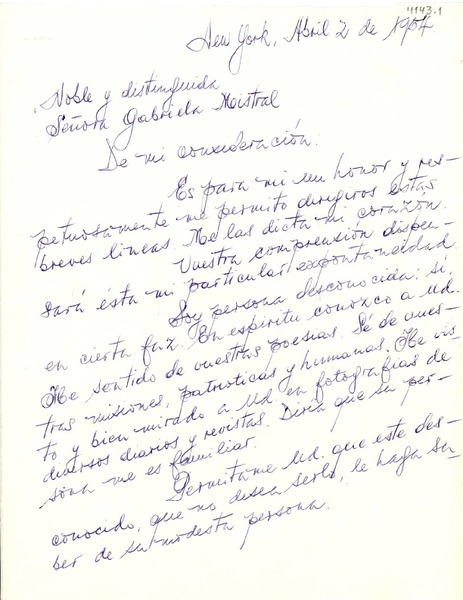 4143.1
New York, Abril 2 de 1954
Noble y distinguida
Señora Gabriela Mistral
De mi consideración:
Es para mi un honor y res-
petuosamente me permito dirigiros estas
breves lineas. Me las dicta mi corazón.
Vuestra comprensión dispen-
sará ésta mi particular expontaneidad.
Soy persona desconocida: sí,
en cierta faz. En espíritu conozco a Ud.
He sentido de vuestras poesias. Sé de vues-
tras misiones, patrioticas y humanas. He vis-
to y bien mirado a Ud en fotografias de
diversos diarios y revistas. Diria que su per-
sona me es familiar.
Permitame Ud. que este des-
conocido, que no desea serlo, le haga sa-
ber de su modesta persona.